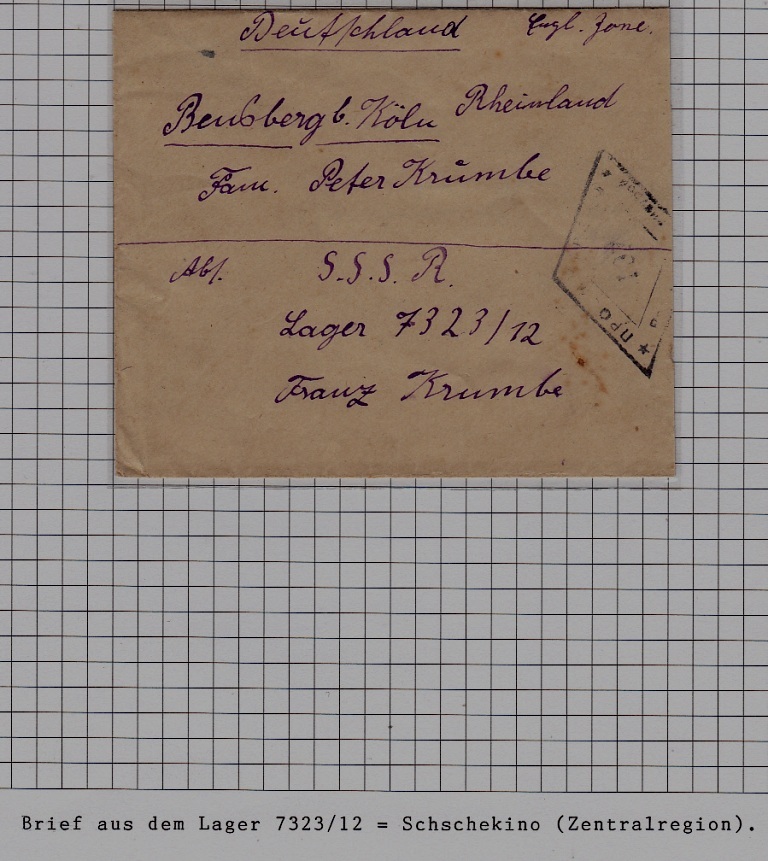 Deutschland Engl. Zone.
Bensberg b. Köln Rheinland
Fam. Peter Krŭmbe
Abs. S.S.S.R.
Lager 7323/12
Franz Krumbe
★ ПРО
Brief aus dem Lager 7323/12 = Schschekino (Zentralregion).